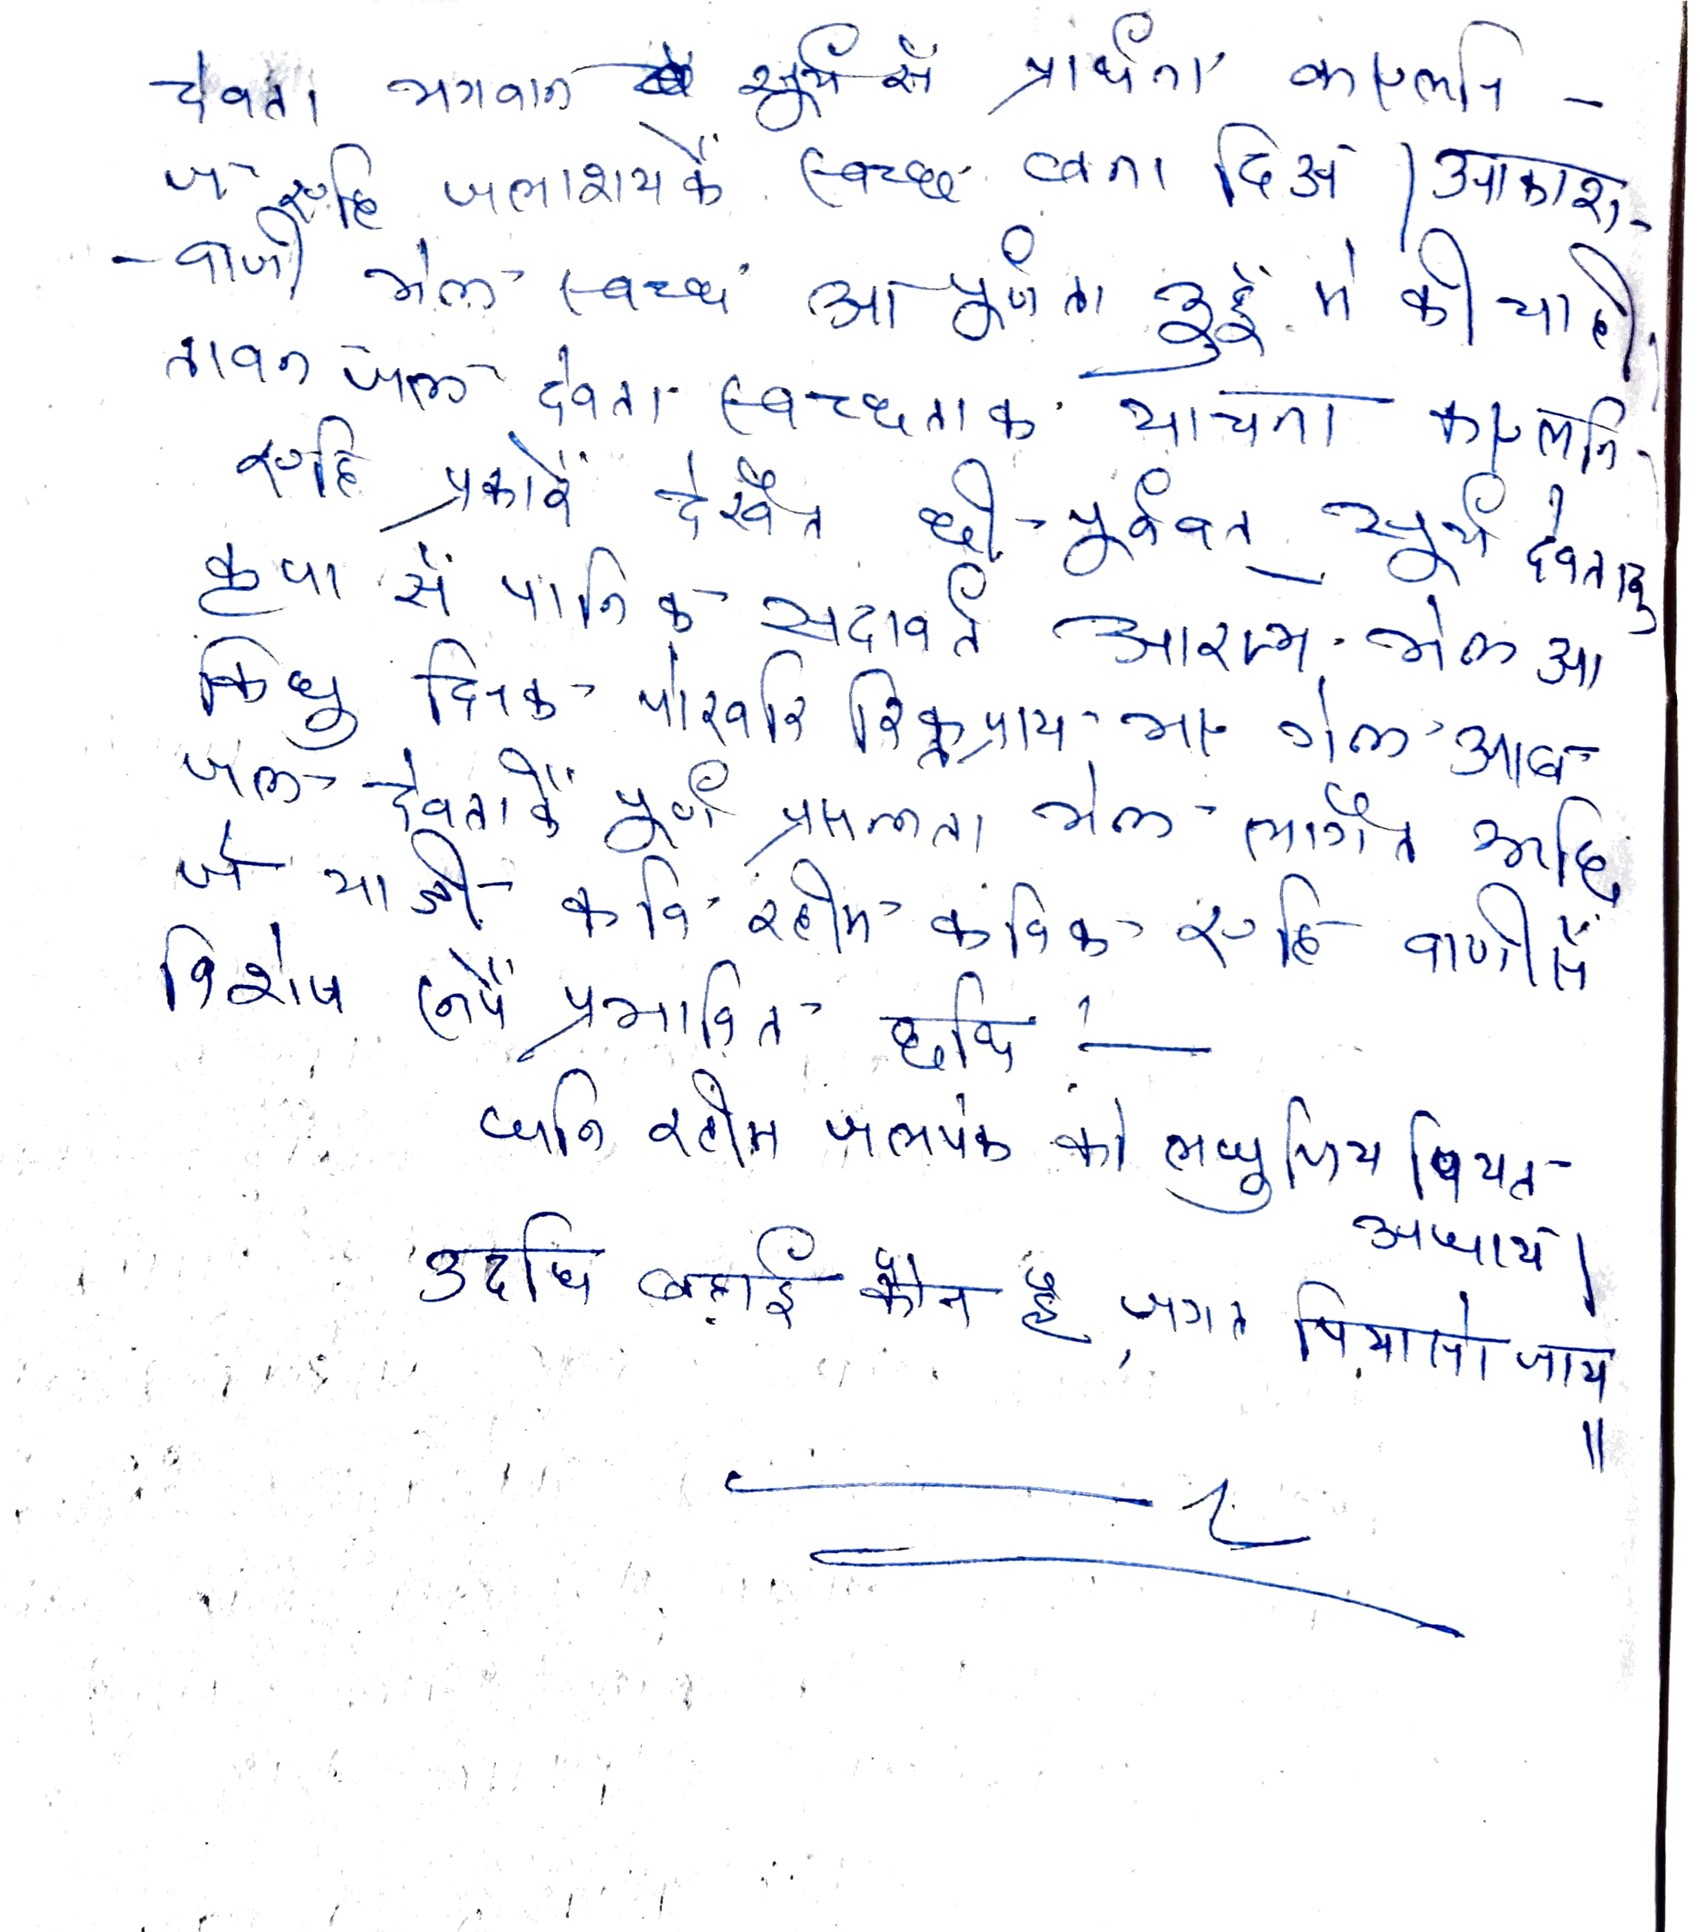 देवता भगवान सूर्य सँ प्रार्थना कएलनि -
जे एहि जलाशयकेँ स्वच्छ बना दिअ । आकाश-
- वाणी भेल स्वच्छ आ पूर्णता दुहूँ मे की चाही,
तावन जल देवता स्वच्छताक याचना कएलनि.
एहि प्रकारेँ देखैत छी - पूर्ववत् सूर्य देवताक
कृपा सँ पानिक सदावर्त आरम्भ भेल आ
किछु दिनक पोखरि रिक्तप्राय भए गेल आब
जल देवताकेँ पूर्ण प्रसन्नता भेल लागैत अछि
जे याञी कवि रहीम कविक एहि वाणीसँ
विशेष रूपेँ प्रभावित छथि :—
धनि रहीम जलपंक को लघु जिय पियत
अघाय ।
उदधि बड़ाई कौन है, जगत पियासो जाय
॥